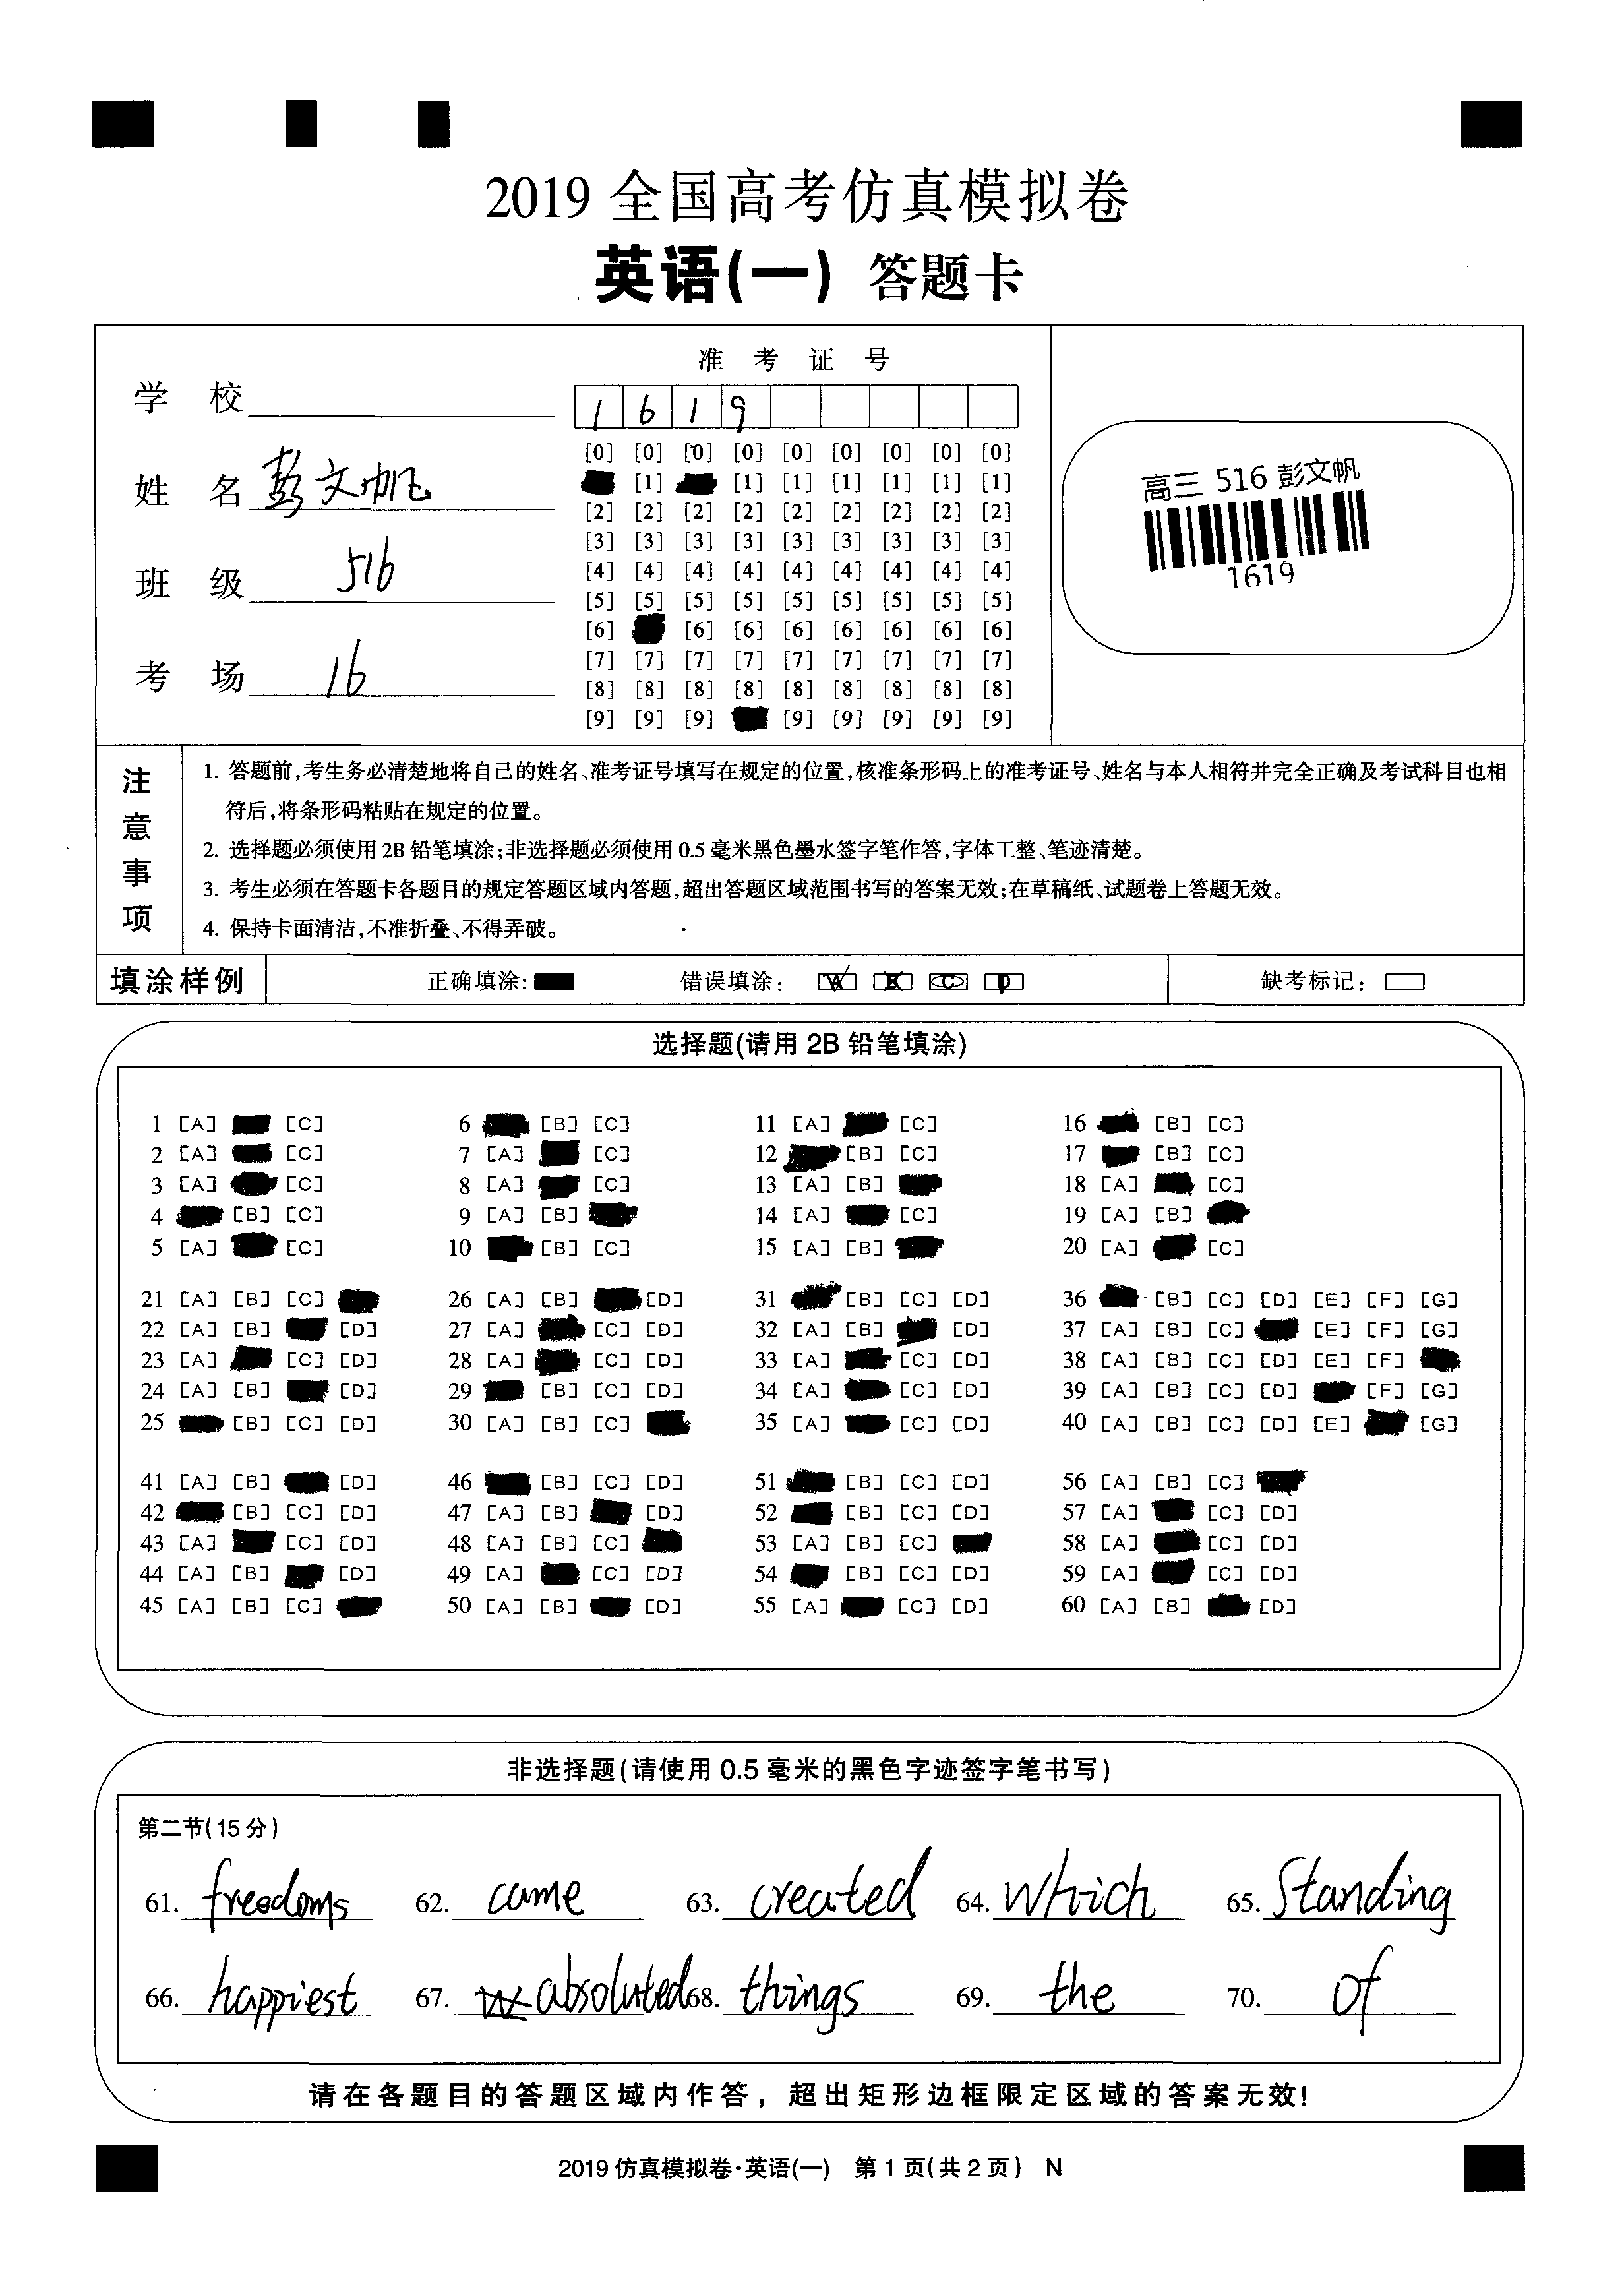 2019 全国高考仿真模拟卷
英语(一) 答题卡
准 考 证 号
学 校
1 6 1 9
姓 名 彭文帆
班 级 516
考 场 16
[0] [0] [0] [0] [0] [0] [0] [0] [0]
[1] [1] [1] [1] [1] [1] [1]
[2] [2] [2] [2] [2] [2] [2] [2] [2]
[3] [3] [3] [3] [3] [3] [3] [3] [3]
[4] [4] [4] [4] [4] [4] [4] [4] [4]
[5] [5] [5] [5] [5] [5] [5] [5] [5]
[6] [6] [6] [6] [6] [6] [6] [6]
[7] [7] [7] [7] [7] [7] [7] [7] [7]
[8] [8] [8] [8] [8] [8] [8] [8] [8]
[9] [9] [9] [9] [9] [9] [9] [9]
高三 516 彭文帆
1619
注意事项
1. 答题前,考生务必清楚地将自己的姓名、准考证号填写在规定的位置,核准条形码上的准考证号、姓名与本人相符并完全正确及考试科目也相
符后,将条形码粘贴在规定的位置。
2. 选择题必须使用2B铅笔填涂;非选择题必须使用0.5毫米黑色墨水签字笔作答,字体工整、笔迹清楚。
3. 考生必须在答题卡各题目的规定答题区域内答题,超出答题区域范围书写的答案无效;在草稿纸、试题卷上答题无效。
4. 保持卡面清洁,不准折叠、不得弄破。
填涂样例 正确填涂: 错误填涂: A B C D 缺考标记:
选择题(请用 2B 铅笔填涂)
1 [A] [C] 6 [B] [C] 11 [A] [C] 16 [B] [C]
2 [A] [C] 7 [A] [C] 12 [B] [C] 17 [B] [C]
3 [A] [C] 8 [A] [C] 13 [A] [B] 18 [A] [C]
4 [B] [C] 9 [A] [B] 14 [A] [C] 19 [A] [B]
5 [A] [C] 10 [B] [C] 15 [A] [B] 20 [A] [C]
21 [A] [B] [C] 26 [A] [B] [D] 31 [B] [C] [D] 36 [B] [C] [D] [E] [F] [G]
22 [A] [B] [D] 27 [A] [C] [D] 32 [A] [B] [D] 37 [A] [B] [C] [E] [F] [G]
23 [A] [C] [D] 28 [A] [C] [D] 33 [A] [C] [D] 38 [A] [B] [C] [D] [E] [F]
24 [A] [B] [D] 29 [B] [C] [D] 34 [A] [C] [D] 39 [A] [B] [C] [D] [F] [G]
25 [B] [C] [D] 30 [A] [B] [C] 35 [A] [C] [D] 40 [A] [B] [C] [D] [E] [G]
41 [A] [B] [D] 46 [B] [C] [D] 51 [B] [C] [D] 56 [A] [B] [C]
42 [B] [C] [D] 47 [A] [B] [D] 52 [B] [C] [D] 57 [A] [C] [D]
43 [A] [C] [D] 48 [A] [B] [C] 53 [A] [B] [C] 58 [A] [C] [D]
44 [A] [B] [D] 49 [A] [C] [D] 54 [B] [C] [D] 59 [A] [C] [D]
45 [A] [B] [C] 50 [A] [B] [D] 55 [A] [C] [D] 60 [A] [B] [D]
非选择题(请使用 0.5 毫米的黑色字迹签字笔书写)
第二节(15 分)
61. freedoms 62. came 63. created 64. which 65. Standing
66. happiest 67. absoluted 68. things 69. the 70. of
请在各题目的答题区域内作答，超出矩形边框限定区域的答案无效!
2019 仿真模拟卷·英语(一) 第 1 页(共 2 页) N